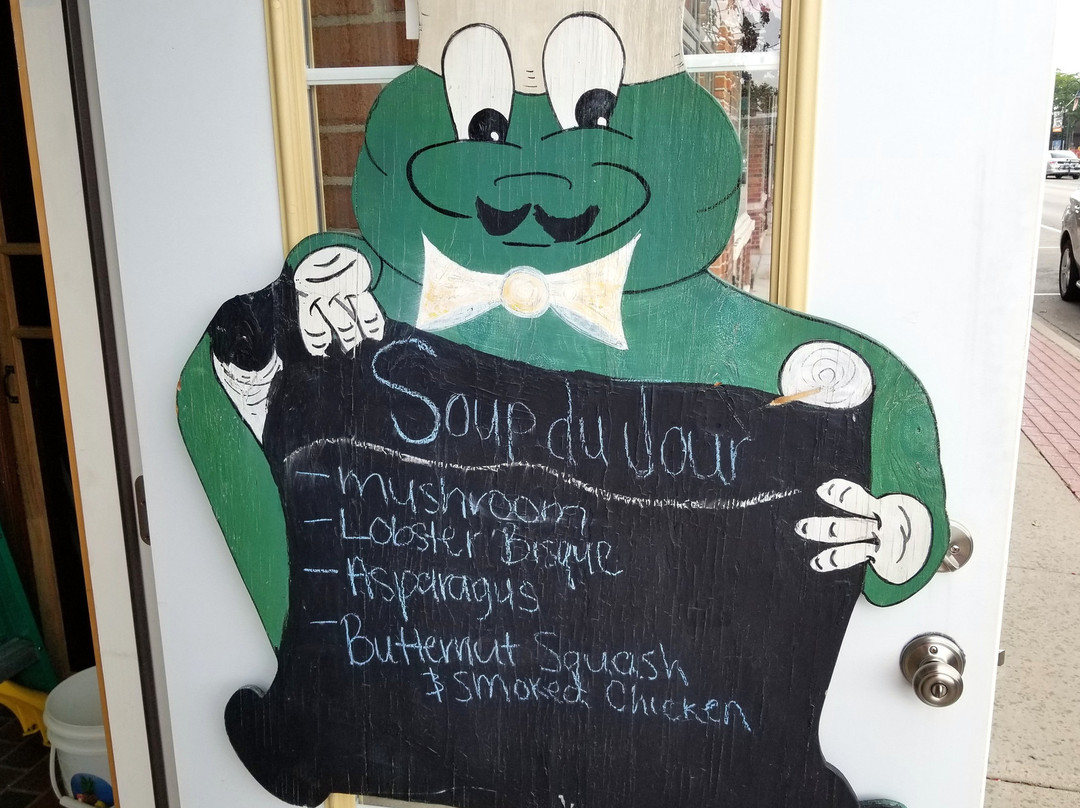 Soup du Jour
- mushroom
- Lobster Bisque
- Asparagus
- Butternut Squash
& smoked Chicken